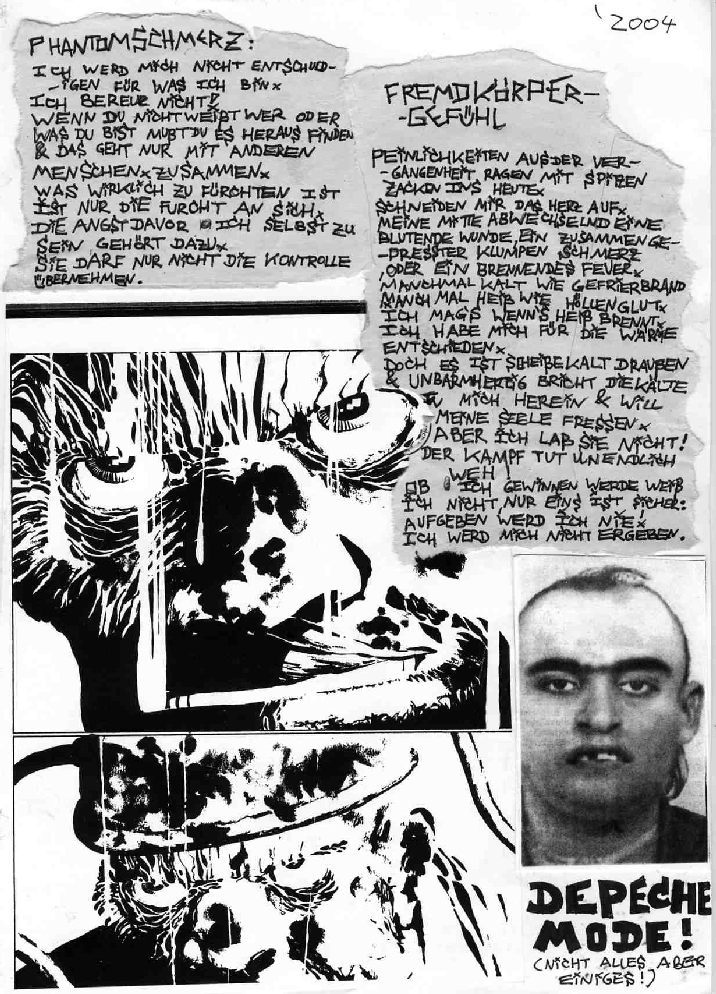 '2004
PHANTOMSCHMERZ:
ICH WERD MICH NICHT ENTSCHUL-
-IGEN FÜR WAS ICH BIN×
ICH BEREUE NICHT!
WENN DU NICHT WEIßT WER ODER
WAS DU BIST MUßT DU ES HERAUS FINDEN
& DAS GEHT NUR MIT ANDEREN
MENSCHEN×ZUSAMMEN×
WAS WIRKLICH ZU FÜRCHTEN IST
IST NUR DIE FURCHT AN SICH×
DIE ANGST DAVOR ICH SELBST ZU
SEIN GEHÖRT DAZU×
SIE DARF NUR NICHT DIE KONTROLLE
ÜBERNEHMEN.
FREMDKÖRPER-
-GEFÜHL
PEINLICHKEITEN AUS DER VER-
-GANGENHEIT RAGEN MIT SPITZEN
ZACKEN INS HEUTE×
SCHNEIDEN MIR DAS HERZ AUF×
MEINE MITTE ABWECHSELND EINE
BLUTENDE WUNDE, EIN ZUSAMMENGE-
-PRESSTER KLUMPEN SCHMERZ
,ODER EIN BRENNENDES FEUER×
MANCHMAL KALT WIE GEFRIERBRAND
MANCH MAL HEIß WIE HÖLLENGLUT×
ICH MAGS WENN'S HEIß BRENNT×
ICH HABE MICH FÜR DIE WÄRME
ENTSCHIEDEN×
DOCH ES IST SCHEIßEKALT DRAUßEN
& UNBARMHERZIG BRICHT DIE KÄLTE
IN MICH HEREIN & WILL
MEINE SEELE FRESSEN×
ABER ICH LAß SIE NICHT!
DER KAMPF TUT UNENDLICH
WEH!
OB ICH GEWINNEN WERDE WEIß
ICH NICHT, NUR EINS IST SICHER:
AUFGEBEN WERD ICH NIE!
ICH WERD MICH NICHT ERGEBEN.
DEPECHE
MODE!
(NICHT ALLES ABER
EINIGES!)